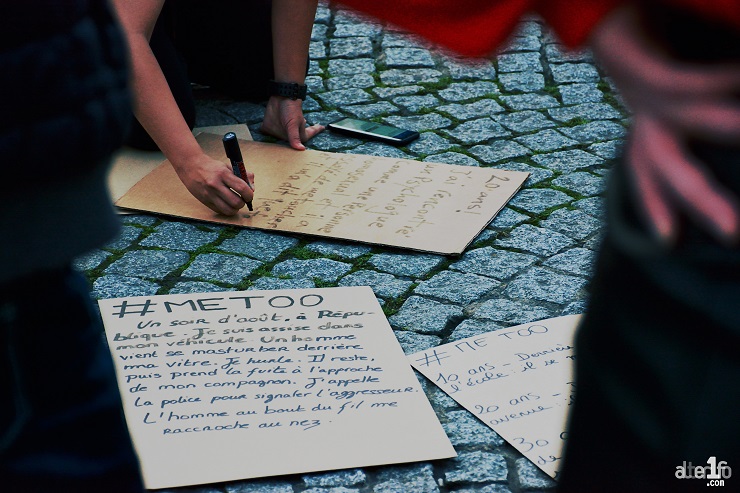 20 ans!
J'ai rencontré
un Psychologue
comme une
et il a
#METOO
Un soir d'août, à Répu-
blique. Je suis assise dans
mon véhicule. Un homme
vient se masturber derrière
ma vitre. Je hurle. Il reste,
puis prend la fuite à l'approche
de mon compagnon. J'appelle
la police pour signaler l'aggresseur.
L'homme au bout du fil me
raccroche au nez.
#METOO
10 ans - Derrière
l'école - il
20 ans -
avenue -
30
alter1fo
.com